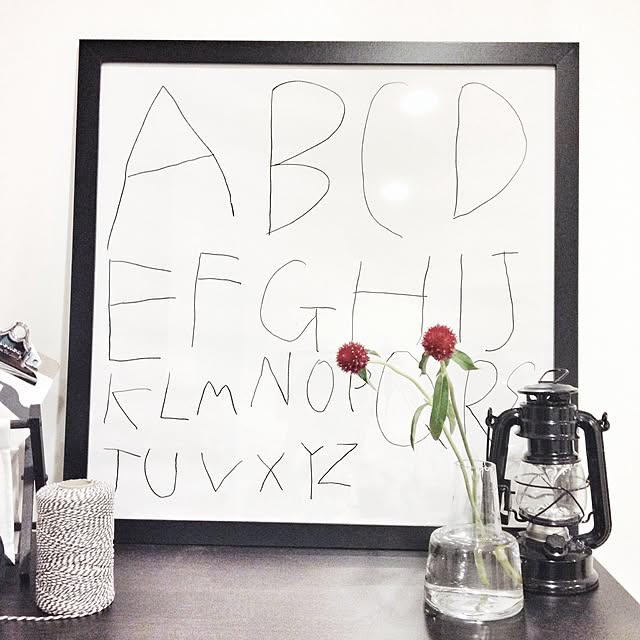 A B C D
E F G H I J
K L M N O P Q R S
T U V W X Y Z